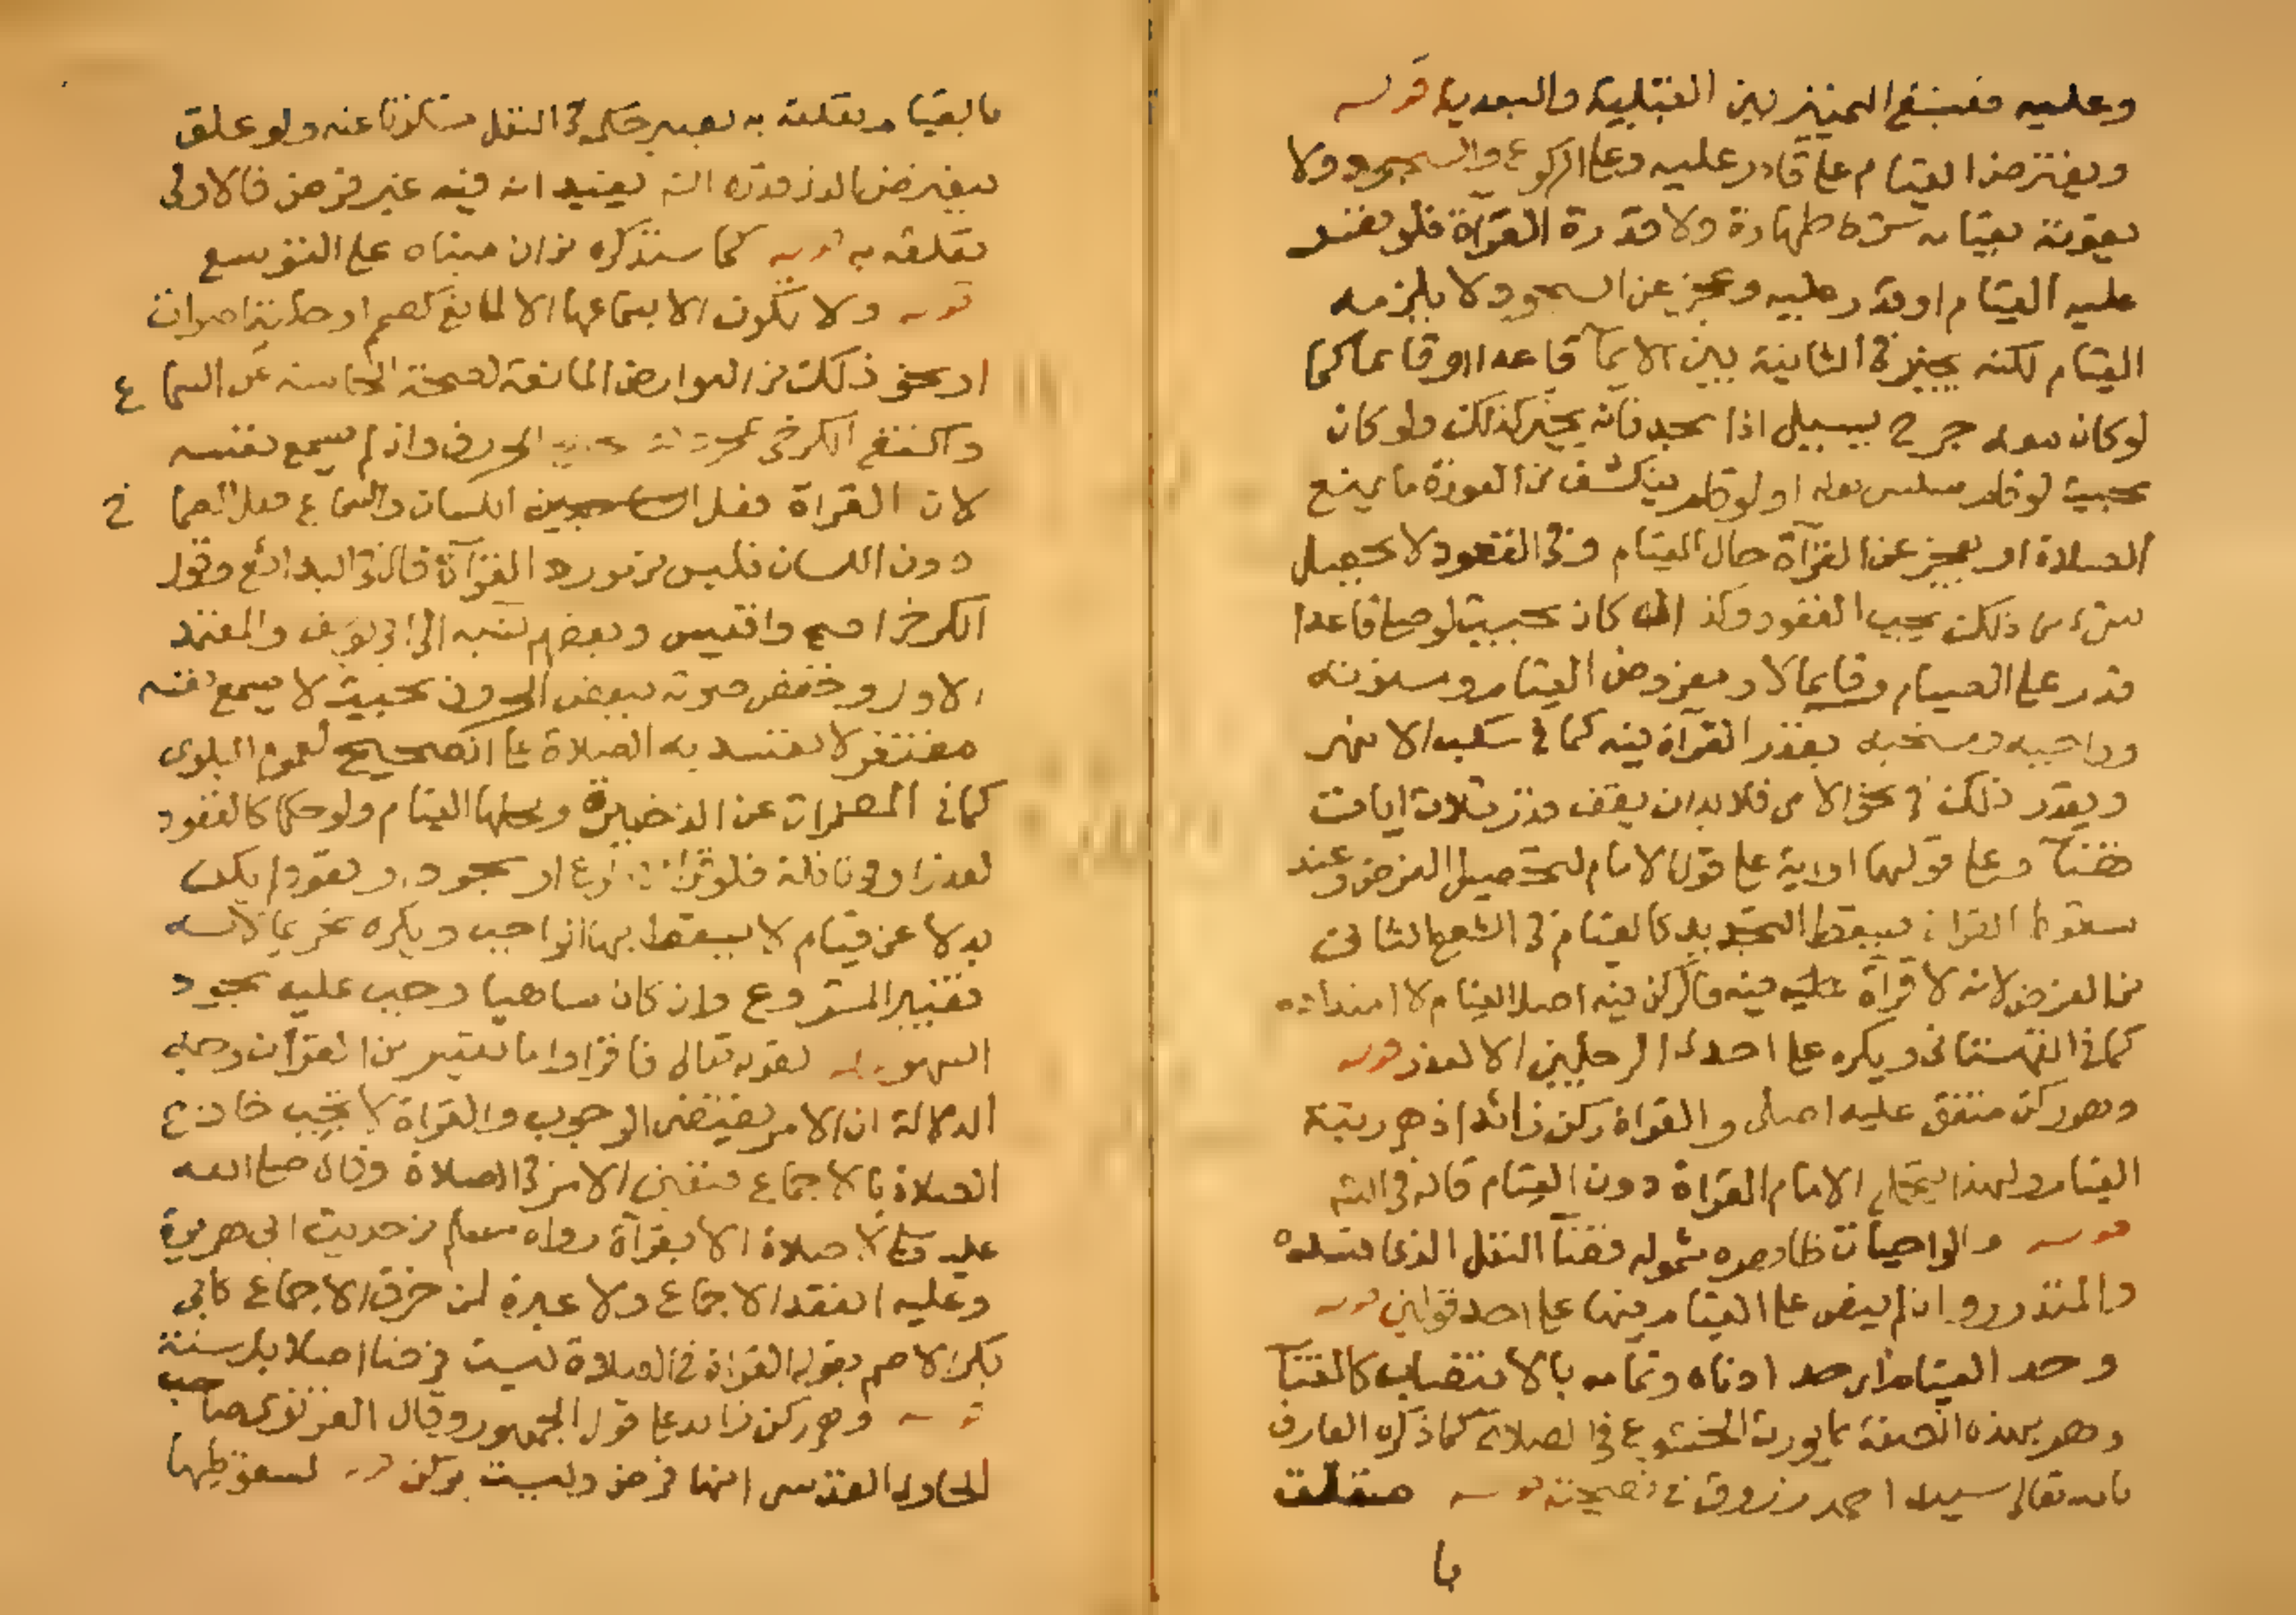 وعليه فينبغي التمييز بين القبلية والبعدية قوله
ويفترض القيام على قادر عليه وعلى الركوع والسجود ولا
يفوته بقيامه شرط طهارة ولا قدرة القراة فلو تعسر
عليه القيام او قدر عليه وعجز عن السجود لا يلزمه
القيام لكنه يخير في الثانية بين الايماً قاعدا او قائما كما
لو كان معه جرح يسيل اذا سجد فانه يخير كذلك ولو كان
بحيث لو قام سلس بوله او لو قام ينكشف من العورة ما يمنع
الصلاة او يعجز عن القرآة حال القيام وفي القعود لا يحصل
شيء من ذلك يجب القعود وكذا كان بحيث لو صلى قاعدا
قدر على الصيام وقائما لا ومفروض القيام ومسنونه
وواجبه ومستحبه بقدر القرآة فيه كما في سكب الانهر
ويقدر ذلك في نحو الامى فلا بد ان يقف قدر ثلاث ايات
وعلى قولهما او اية على قول الامام لتحصيل الفرض وعند
سقوط القراة يسقط التحديد كالقيام في الشفع الثانى
من الفرض لانه لا قرآة فيه فالركن فيه اصل القيام لا امتداده
كما في القهستانى ويكره على احدى الرجلين الا لعذر قوله
وهو ركن متفق عليه اصلى والقراة ركن زائد اذ هو زينة
القيام ولهذا يتحمل الامام القراة دون القيام قاله في الشر
قوله والواجبات ظاهره شموله قضاً النفل الذى افسده
والمنذور وان لم ينص على القيام فيها على احد قولين قوله
وحد القيام اى حد ادناه وتمامه بالانتصاب كالقنا
وهو بهذه الصفة مما يورث الخشوع في الصلاة كما ذكره العارف
بالله تعالى سيدى احمد زروق في نصيحته قوله متعلق
با
بالقيام وتعلقه به يصير حكم النفل مسكوتا عنه ولو علق
بغير
تعلقه به قوله كما سنذكره من ان مبناه على التوسع
قوله ولا تكون الا بسماعها الا لمانع كصمم او جلبة اصوات
او نحو ذلك من العوارض المانعة لصحة الحاسة عن السما ع
واكتفى الكرخى بمجرد الحروف وان لم يسمع نفسه
لان القراة فعل اللسان والسماع فعل الصما خ
دون اللسان فليس من القرآة قال في البدائع وقول
الكرخى اصح واقيس وبعضهم نسبه الى ابى يوسف والمعتمد
الاول وخفض صوته ببعض الحروف بحيث لا يسمع نفسه
مغتفر لا تفسد به الصلاة على الصحيح لعموم البلوى
كما في المضمرات عن الذخيرة ومحلها القيام ولو حكما كالقعود
لعذر او في نافلة فلو قرا في ركوع او سجود او قعود لم يكن
بدلا عن قيام لا يسقط بها الواجب ويكره تحريما لانه
تغيير المشروع وان كان ساهيا وجب عليه سجود
السهو قوله لقوله تعالى فاقراوا ما تيسر من القرأن وجه
الدلالة ان الامر يقتضى الوجوب والقراة لا تجب خارج
الصلاة بالاجماع فتعين الامر في الصلاة وقال صلى الله
عليه وسلم لا صلاة الا بقرآة رواه مسلم من حديث ابى هريرة
وعليه انعقد الاجماع ولا عبرة لمن خرق الاجماع كابى
بكر الاصم بقوله القراة في الصلاة ليست فرضا اصلا بل سنة
قوله وهو ركن زائد على قول الجمهور وقال الغزنوى صاحب
الحاوى القدسى انها فرض وليست بركن قوله لسقوطها